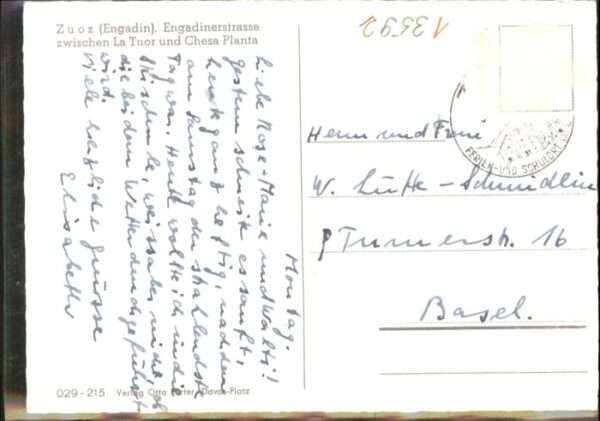 Zuoz (Engadin). Engadinerstrasse
zwischen La Tuor und Chesa Planta
13592
Montag.
Liebe Rose-Marie und Walti!
Gestern schneite es sanft,
heute ganz heftig, nachdem
am Samstag der strahlendste
Tag war. Heute wollte ich in die
Skischule, weiss aber nicht ob
die bei dem Wetter durchgeführt
wird.
Viele herzliche Grüsse
Elisabeth
Herrn und Frau
W. Lüthi-Schmidlin
Turnerstr. 16
Basel.
FERIEN- UND
029-215 Verlag Otto Davos-Platz